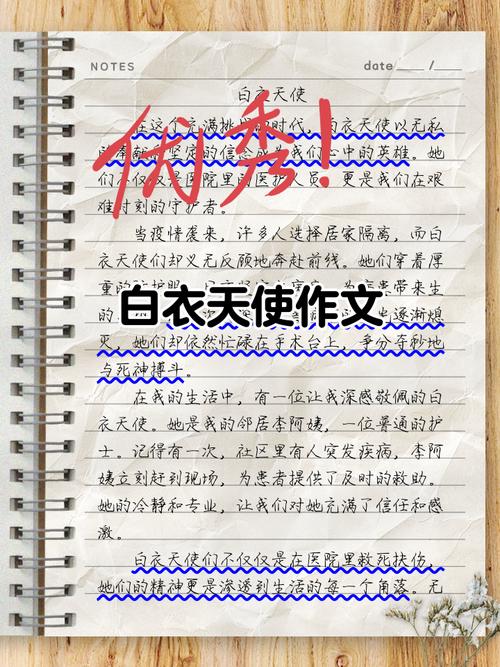 NOTES
date ____ / ____
白衣天使
在这个充满挑 的时代,白衣天使以无私
奉献 坚定的信念成为我们 中的英雄。她
们不仅仅是医院里的医护人员,更是我们在艰
难时刻的守护者。
优秀!
当疫情袭来,许多人选择居家隔离,而白
衣天使们却义无反顾地奔赴前线。她们穿着厚
重的 患带来生
的 逐渐熄
白衣天使作文
灭,她们却依然忙碌在手术台上,争分夺秒地
与死神搏斗。
在我的生活中,有一位让我深感敬佩的白
衣天使。她是我的邻居李阿姨,一位普通的护
士。记得有一次,社区里有人突发疾病,李阿
姨立刻赶到现场,为患者提供了及时的救助。
她的冷静和专业,让我们对她充满了信任和感
激。
白衣天使们不仅仅是在医院里救死扶伤,
她们的精神更是渗透到生活的每一个角落。无